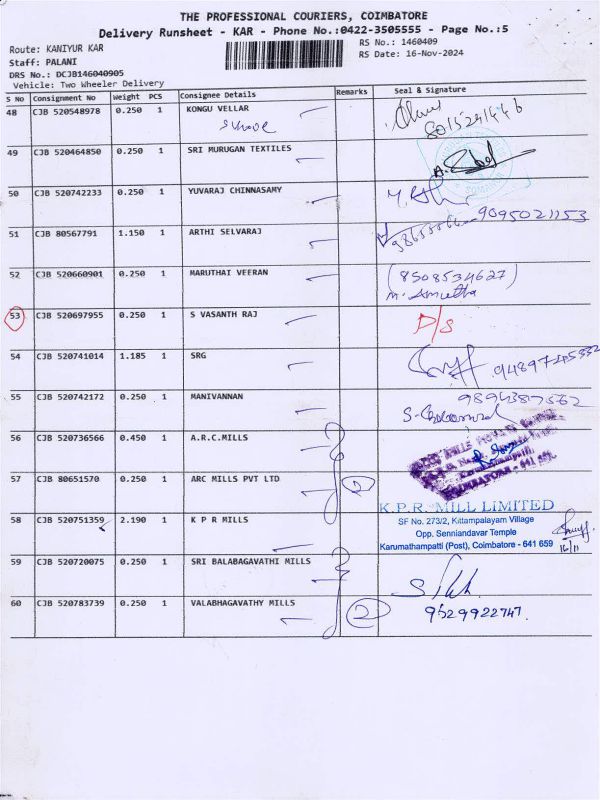 THE PROFESSIONAL COURIERS, COIMBATORE
Delivery Runsheet - KAR - Phone No.:0422-3505555 - Page No.:5
Route: KANIYUR KAR
RS No.: 1460409
Staff: PALANI
RS Date: 16-Nov-2024
DRS No.: DCJB146040905
Vehicle: Two Wheeler Delivery
S No Consignment No Weight PCS Consignee Details Remarks Seal & Signature
48 CJB 520548978 0.250 1 KONGU VELLAR
49 CJB 520464850 0.250 1 SRI MURUGAN TEXTILES
50 CJB 520742233 0.250 1 YUVARAJ CHINNASAMY 9095021153
51 CJB 80567791 1.150 1 ARTHI SELVARAJ
52 CJB 520660901 0.250 1 MARUTHAI VEERAN (8508534627)
m. Amutha
53 CJB 520697955 0.250 1 S VASANTH RAJ D/S
54 CJB 520741014 1.185 1 SRG
55 CJB 520742172 0.250 1 MANIVANNAN
56 CJB 520736566 0.450 1 A.R.C.MILLS
57 CJB 80651570 0.250 1 ARC MILLS PVT LTD 2
58 CJB 520751359 2.190 1 K P R MILLS
K.P.R. MILL LIMITED
SF No. 273/2, Kittampalayam Village
Opp. Senniandavar Temple
Karumathampatti (Post), Coimbatore - 641 659
16/11
59 CJB 520720075 0.250 1 SRI BALABAGAVATHI MILLS
60 CJB 520783739 0.250 1 VALABHAGAVATHY MILLS 2 9629922747.